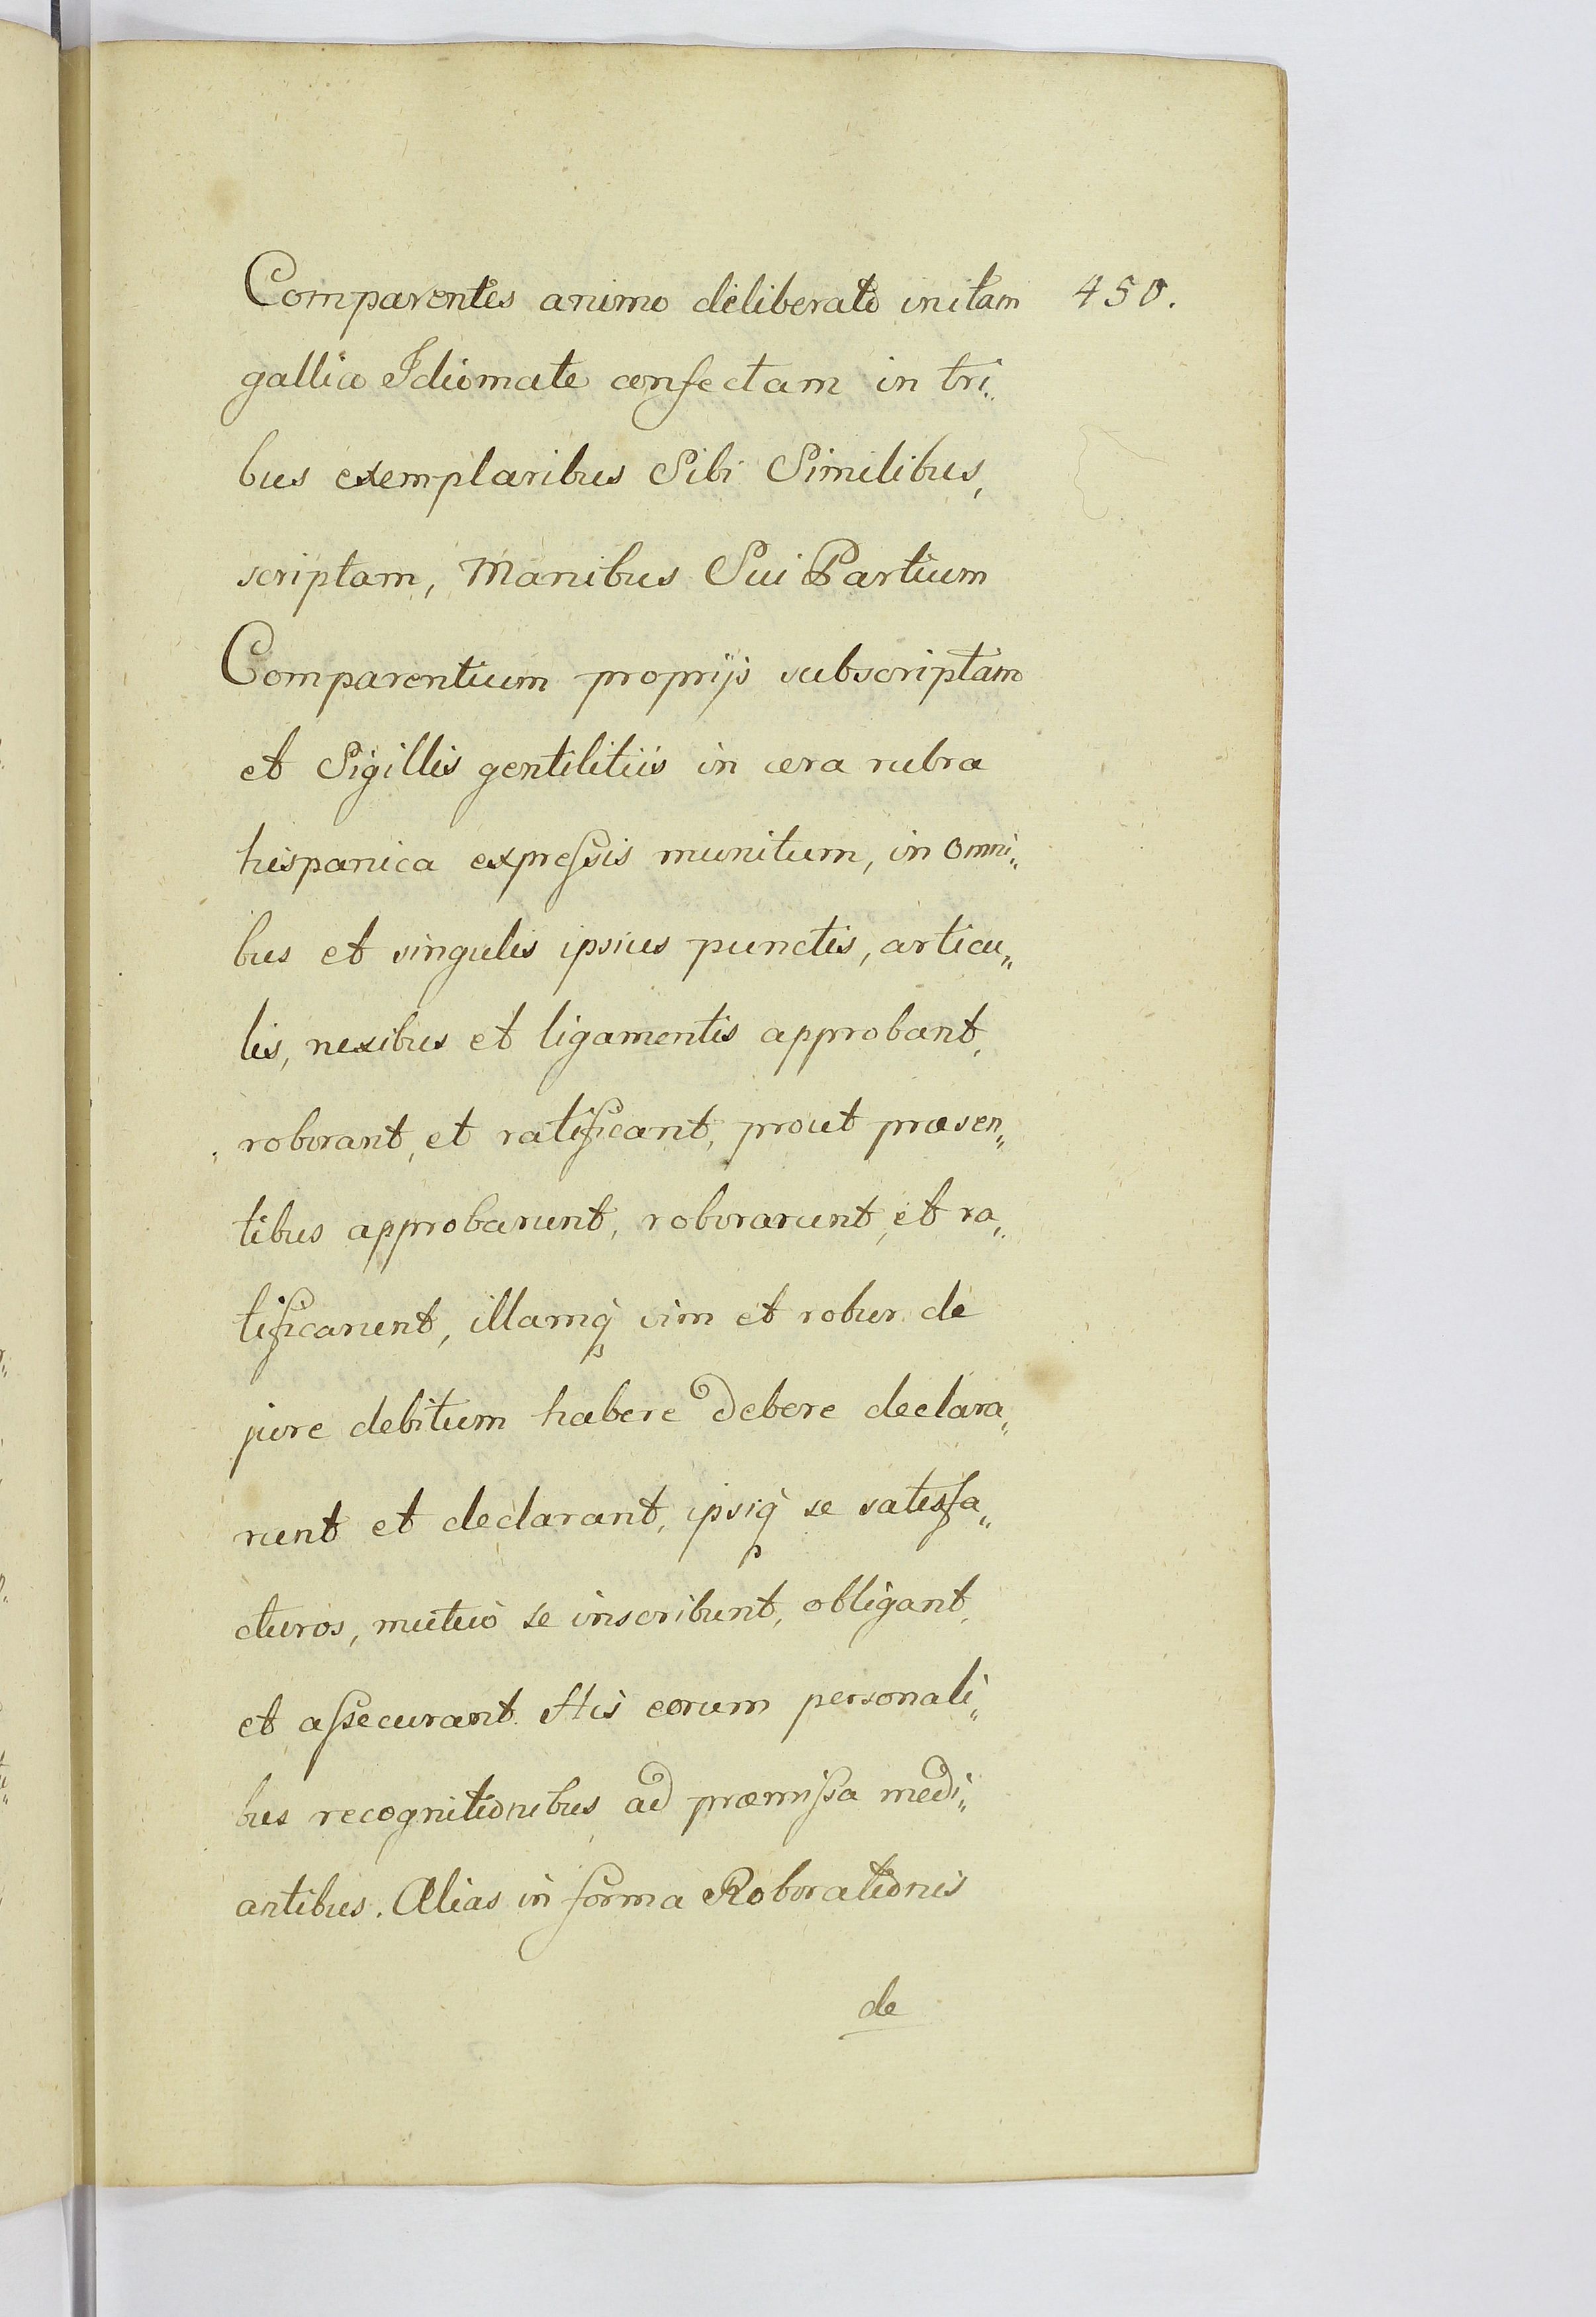 Comparentes animo deliberato initam 450.
gallico Idiomate confectam in tri„
bus exemplaribus Sibi Similibus,
scriptam, Manibus Sui Partium
Comparentium proprijs subscriptam
et Sigillis gentilitiis in cera rubra
hispanica expreſsis munitum, in omni„
bus et singulis ipsius punctis, articu„
lis, nexibus et ligamentis approbant,
roborant, et ratificant, prout præsen„
tibus approbarunt, roborarunt, et ra„
tificarunt, illamq̨ vim et robur de
jure debitum habere debere declara„
runt et declarant, ipsiq̨ se satisfa„
cturos, mutuo se inscribunt, obligant,
et aſsecurant. His eorum personali„
bus recognitionibus ad præmiſsa medi„
antibus. Alias in forma Roborationis
de